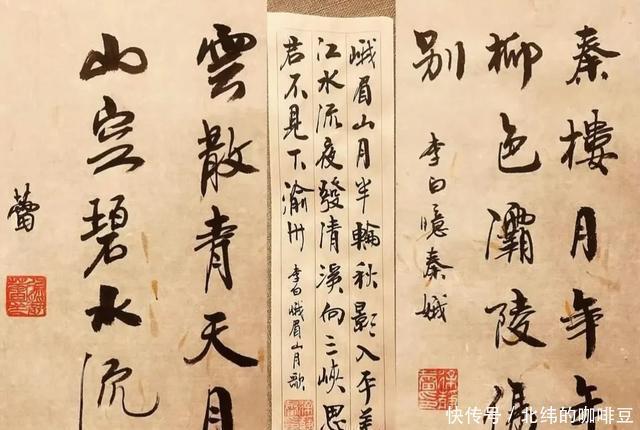 秦樓月年年
柳色灞陵傷
別
李白憶秦娥
峨眉山月半輪秋影入平羌
江水流夜發清溪向三峽思
君不見下渝州 李白峨眉山月歌
雲散青天月
山空碧水流
蕾
快传号/北纬的咖啡豆